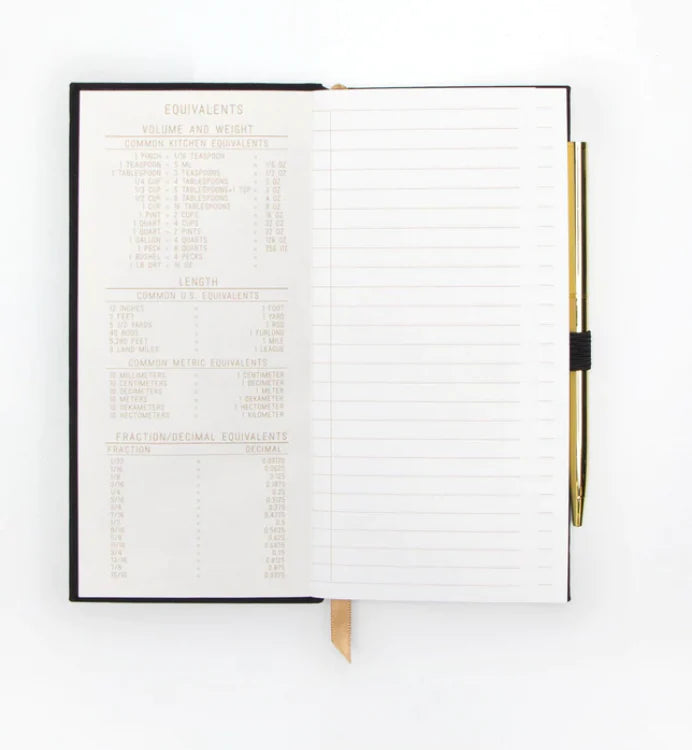 EQUIVALENTS
VOLUME AND WEIGHT
COMMON KITCHEN EQUIVALENTS
1 PINCH = 1/16 TEASPOON
1 TEASPOON = 5 ML = 1/6 OZ
1 TABLESPOON = 3 TEASPOONS = 1/2 OZ
1/4 CUP = 4 TABLESPOONS = 2 OZ
1/3 CUP = 5 TABLESPOONS+1 TSP = OZ
1/2 CUP = 8 TABLESPOONS = 4 OZ
1 CUP = 16 TABLESPOONS = 8 OZ
1 PINT = 2 CUPS = 16 OZ
1 QUART = 4 CUPS = 32 OZ
1 QUART = 2 PINTS = 32 OZ
1 GALLON = 4 QUARTS = 128 OZ
1 PECK = 8 QUARTS = 256 OZ
1 BUSHEL = 4 PECKS =
LENGTH
COMMON U.S. EQUIVALENTS
12 INCHES = 1 FOOT
3 FEET = 1 YARD
5 1/2 YARDS = 1 ROD
40 RODS = 1 FURLONG
5,280 FEET = 1 MILE
3 LAND MILES = 1 LEAGUE
COMMON METRIC EQUIVALENTS
10 MILLIMETERS = 1 CENTIMETER
10 CENTIMETERS = 1 DECIMETER
10 DECIMETERS = 1 METER
10 METERS = 1 DEKAMETER
10 DEKAMETERS = 1 HECTOMETER
10 HECTOMETERS = 1 KILOMETER
FRACTION/DECIMAL EQUIVALENTS
FRACTION DECIMAL
1/32 = 0.03125
1/16 = 0.0625
1/8 = 0.125
3/16 = 0.1875
1/4 = 0.25
5/16 = 0.3125
3/8 = 0.375
7/16 = 0.4375
1/2 = 0.5
9/16 = 0.5625
5/8 = 0.625
11/16 = 0.6875
3/4 = 0.75
13/16 = 0.8125
7/8 = 0.875
15/16 = 0.9375